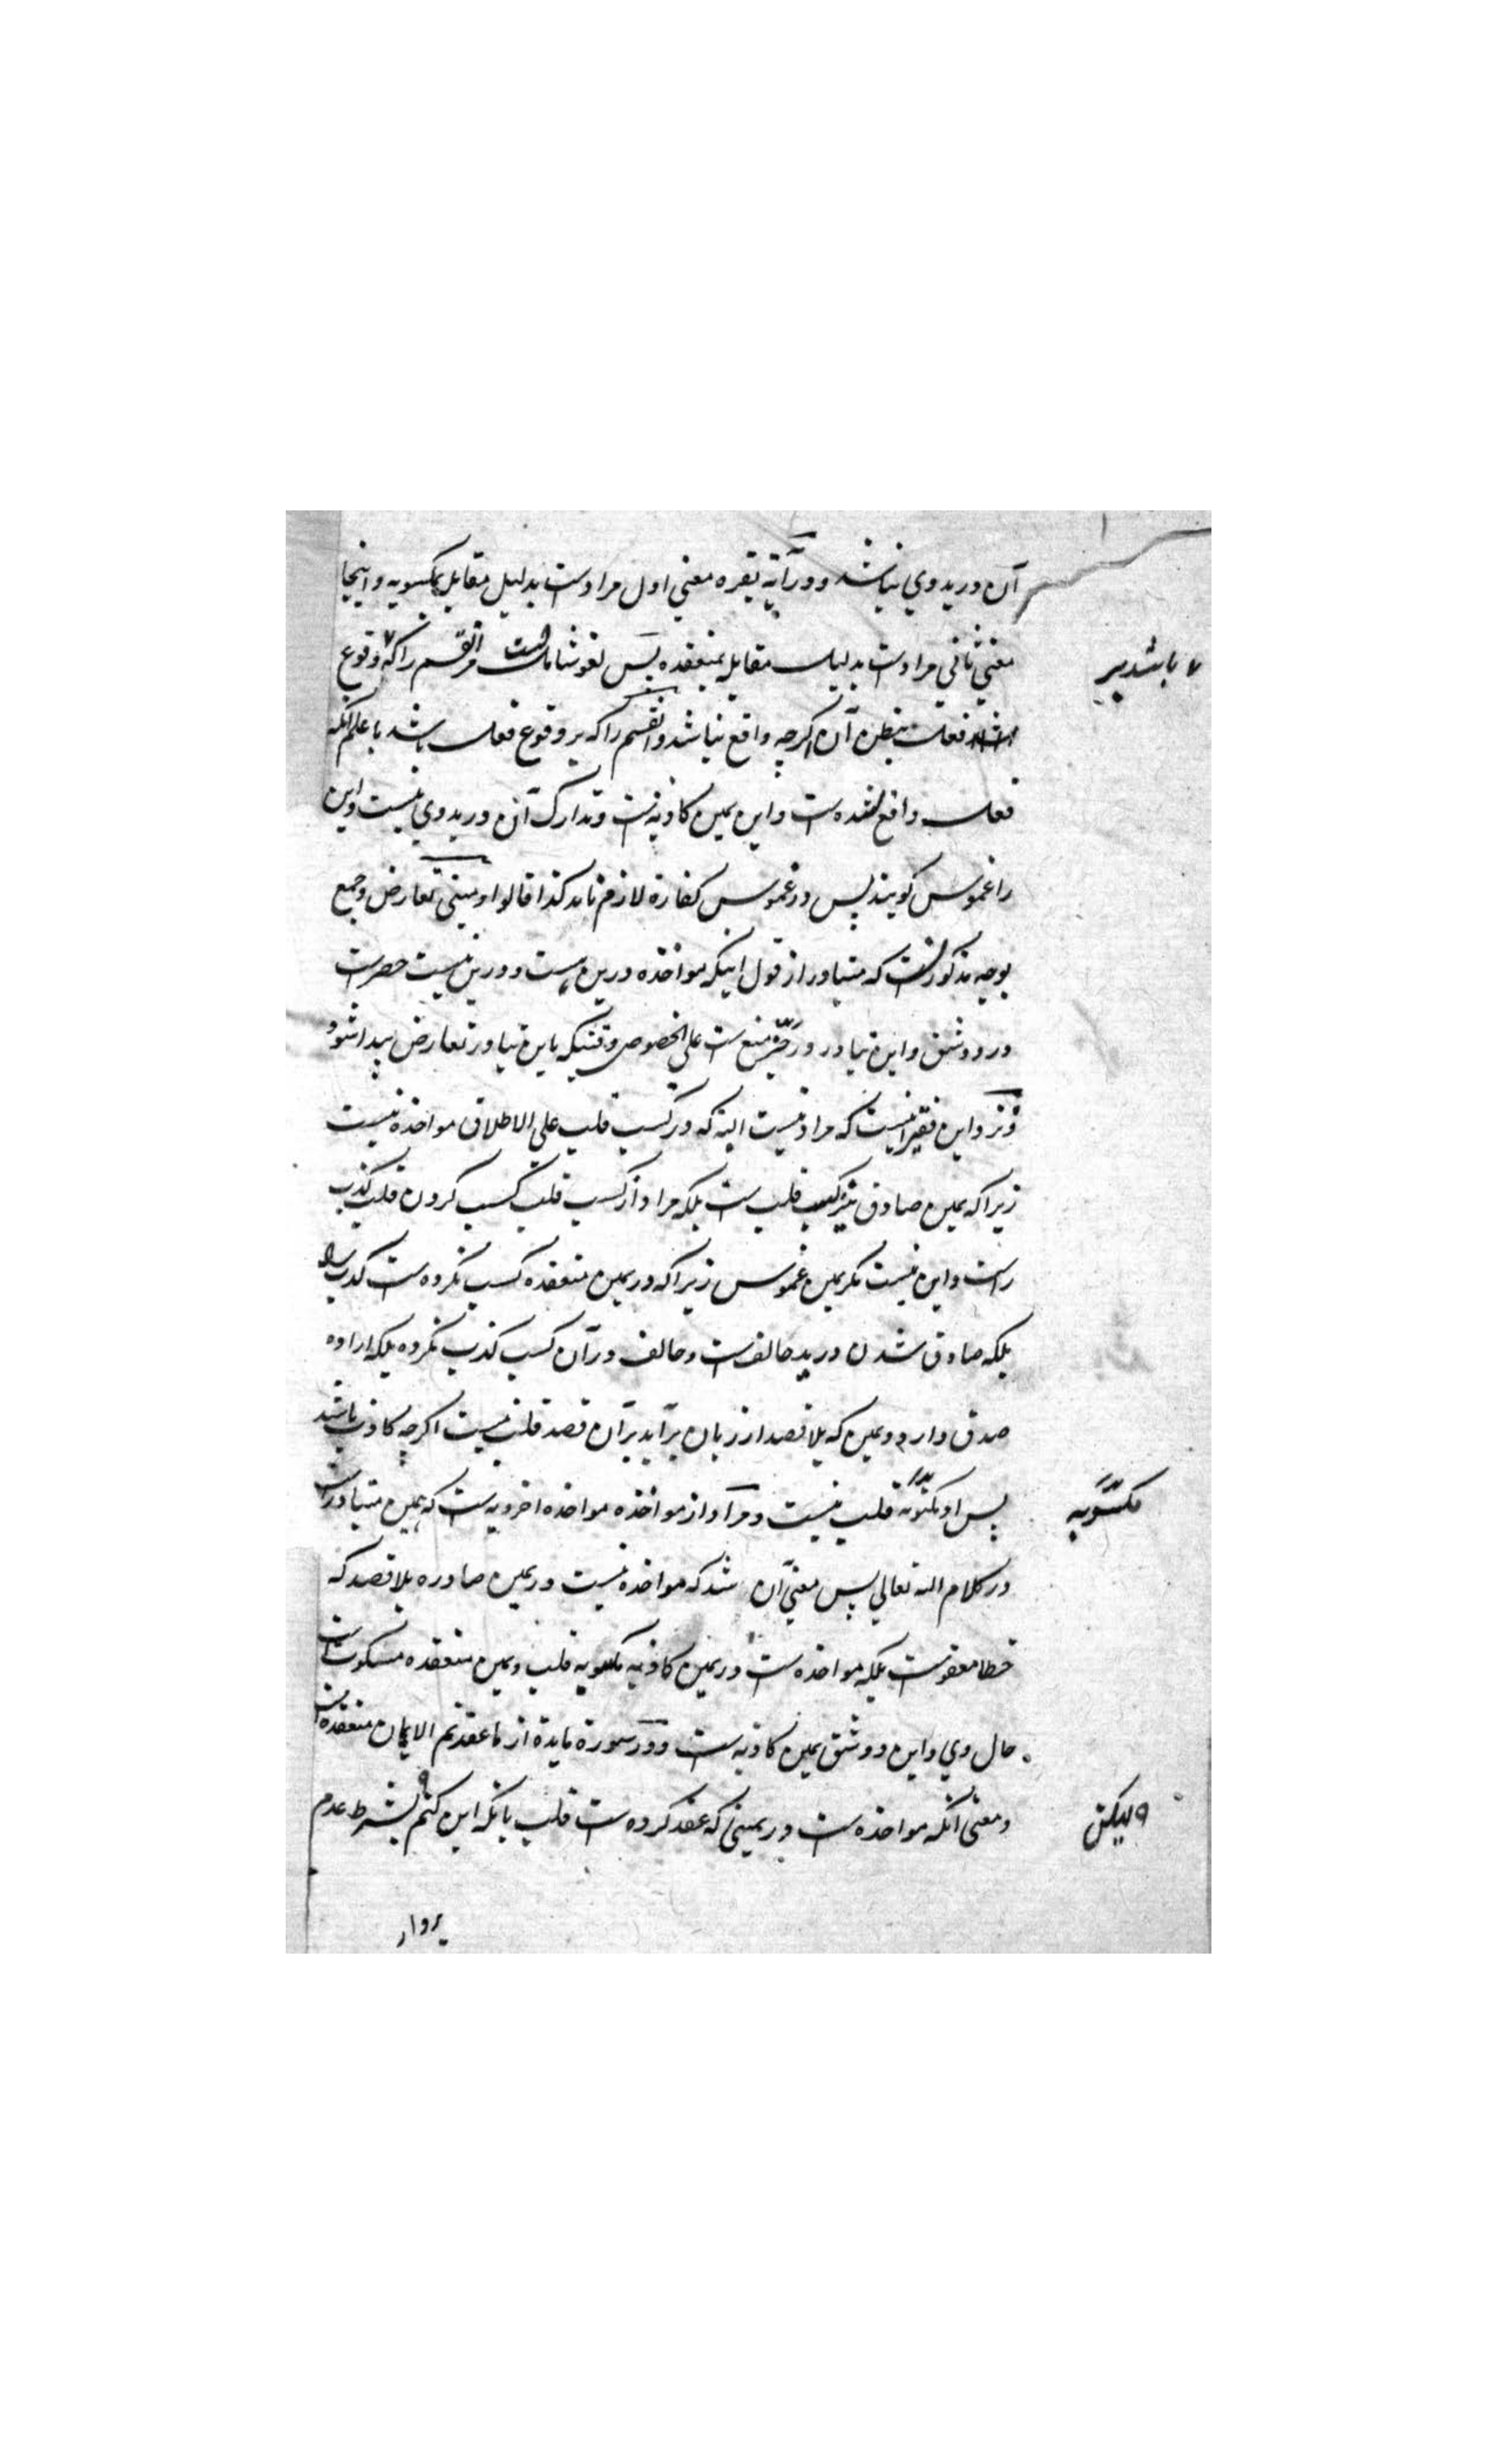 آن در ید وی نباشد و در آیة بقره معنی اول مرادست بدلیل مقابل بمکسوبه و اینجا
معنی ثانی مرادست بدلیل مقابله بمنعقده پس لغو شاملست مر آنقسم را که وقوع
باشد بر
فعل بظن آن اگرچه واقع نباشد و انقسم را که بر وقوع فعل باشد با علم آنکه
فعل واقع نشده ست و این یمین کاذبه است و تدارک آن در ید وی نیست و این
را غموس گویند پس در غموس کفارة لازم نیاید کذا قالوا و مبنی تعارض و جمع
بوجه مذکور انست که متبادر از قول اینکه مواخذه درین ست و درین نیست حصرست
در دو شق و این تبادر در حیز منع ست علی الخصوص وقتیکه باین تبادر تعارض پیدا شود
و نزد این فقیر انیست که مراد نیست البته که در کسب قلب علی الاطلاق مواخذه نیست
زیرا که یمین صادق نیز کسب قلب ست بلکه مراد از کسب قلب کسب کردن قلب کذب
راست و این نیست مگر یمین غموس زیرا که در یمین منعقده کسب نکرده ست کذب را
بلکه صادق شدن در ید حالف ست و حالف در آن کسب کذب نکرده بلکه اراده
صدق دارد و یمین که بلا قصد از زبان برآید بر آن قصد قلب نیست اگرچه کاذب باشد
پس او قلب نیست و مراد از مواخذه مواخذه اخرویه ست که همین متبادر است
مکسوبه
در کلام الله تعالی پس معنی آن شد که مواخذه نیست در یمین صادره بلا قصد که
خطا معفوست بلکه مواخذه ست در یمین کاذبه مکسوبه قلب و یمین منعقده مسکوت است
حال وی و این دو شق یمین کاذبه ست و در سورة مایدة از ما عقدتم الایمان منعقده است
و معنی آنکه مواخذه ست در یمینی که عقد کرده ست قلب بانکه این کنم بشرط عدم
ولیکن